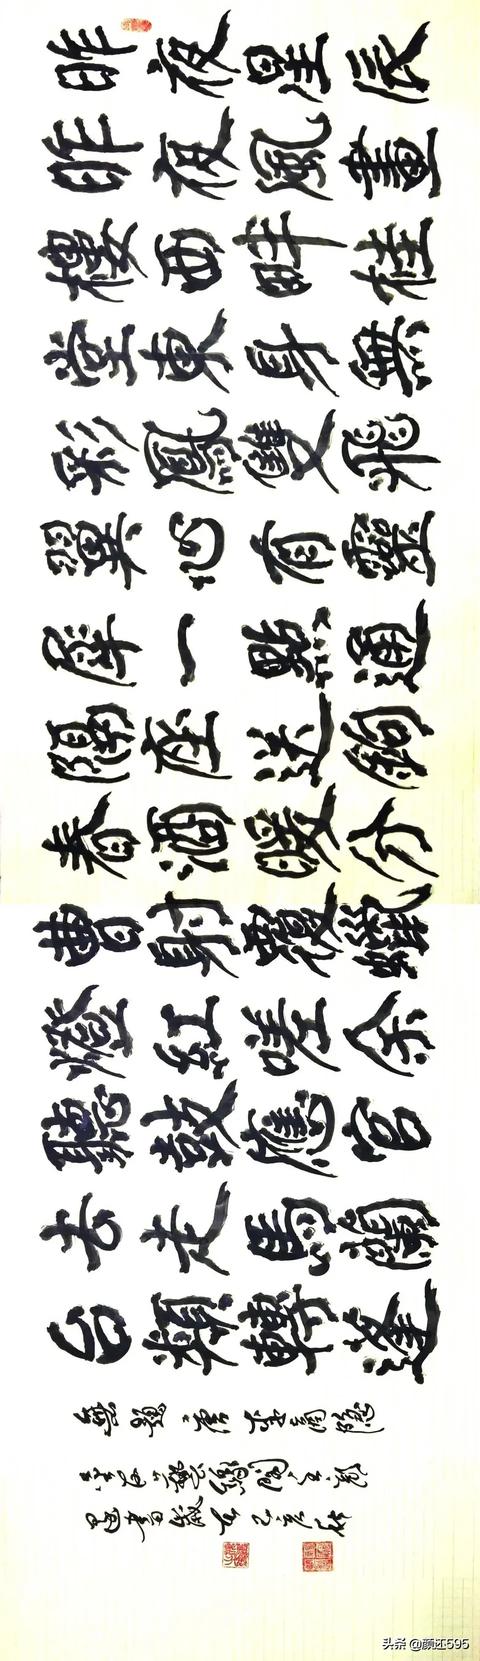 昨夜星辰
昨夜風畫
樓西畔桂
堂東身無
彩鳳雙飛
翼心有靈
犀一點通
隔座送鉤
春酒暖分
曹射覆蠟
燈紅嗟余
聽鼓應官
去走馬蘭
台類轉蓬
無題唐李商隱
書歲在己亥秋
头条 @颜还595